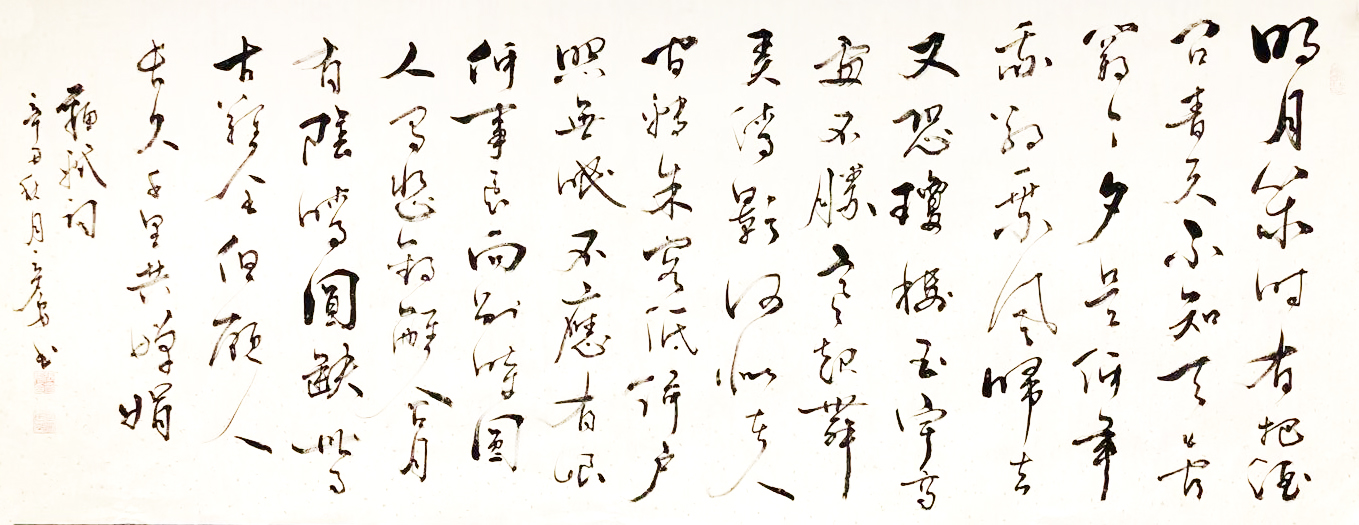 明月幾时有把酒
问青天不知天上宫
闕今夕是何年
我欲乘风歸去
又恐瓊樓玉宇高
處不勝寒起舞
弄清影何似在人
间转朱阁低绮户
照無眠不應有恨
何事長向别時圓
人有悲歡離合月
有陰晴圓缺此事
古難全但願人
長久千里共嬋娟
蘇軾词
辛丑秋月 书